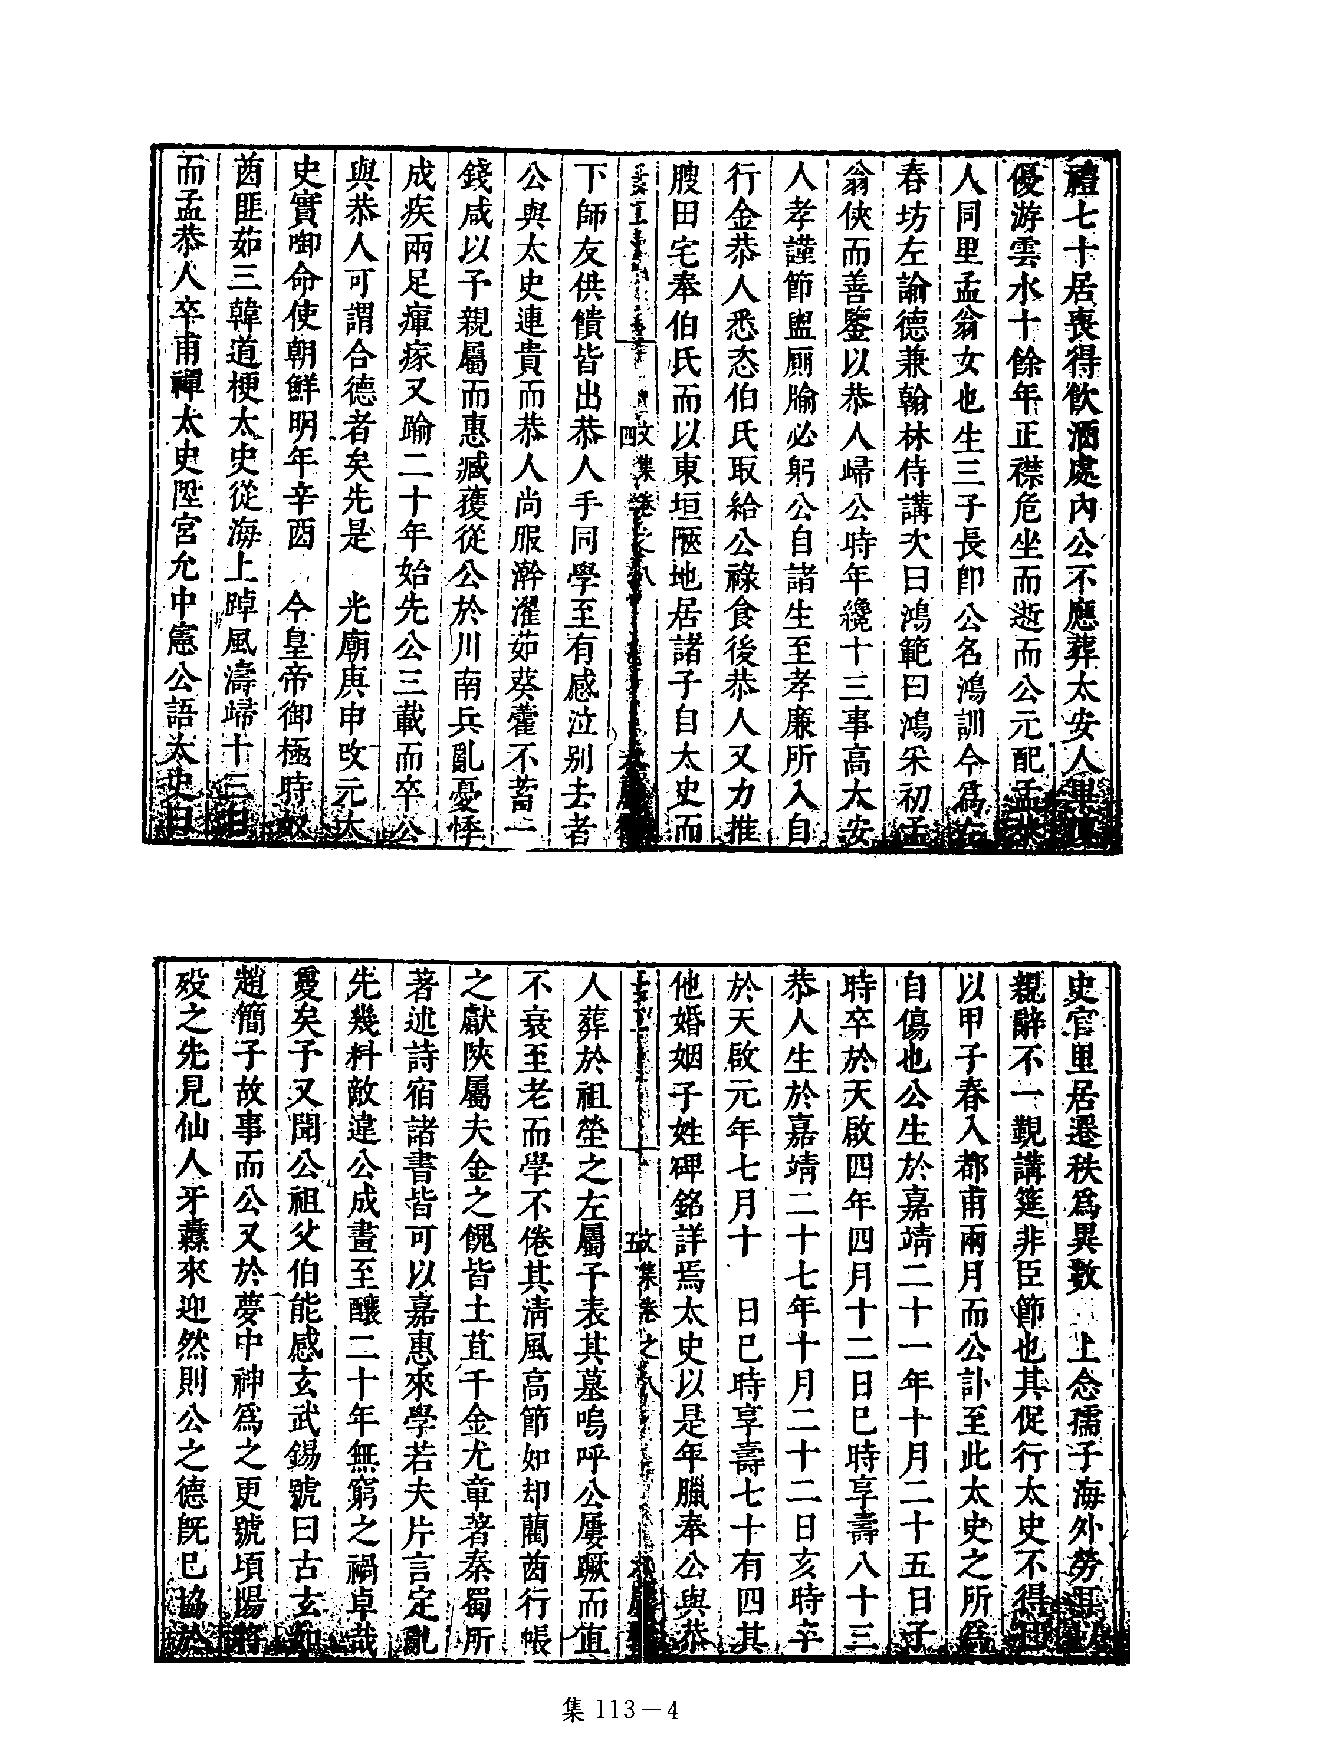 禮七十居喪得飲酒處內公不應葬太安人畢
優游雲水十餘年正襟危坐而逝而公元配孟恭
人同里孟翁女也生三子長即公名鴻訓今為左
春坊左諭德兼翰林侍講次曰鴻範曰鴻采初孟
翁俠而善鑒以恭人歸公時年纔十三事高太安
人孝謹節盥廁牏必躬公自諸生至孝廉所入自
行金恭人悉恣伯氏取給公祿食後恭人又力推
膄田宅奉伯氏而以東垣陋地居諸子自太史而
文集卷之八
四
下師友供饋皆出恭人手同學至有感泣別去者
公與太史連貴而恭人尚服澣濯茹葵藿不蓄一
錢咸以予親屬而惠臧蒦從公於川南兵亂憂悸
成疾兩足痺瘃又踰二十年始先公三載而卒公
與恭人可謂合德者矣先是 光廟庚申改元太
史實啣命使朝鮮明年辛酉 今皇帝御極時奴
酋匪茹三韓道梗太史從海上踔風濤歸十二月
而孟恭人卒甫禫太史陞宮允中憲公語太史曰
史官里居遷秩為異數 上念孺子海外勞耳以
親辭不一覲講筵非臣節也其促行太史不得已
以甲子春入都甫兩月而公訃至此太史之所為
自傷也公生於嘉靖二十一年十月二十五日子
時卒於天啟四年四月十二日巳時享壽八十三
恭人生於嘉靖二十七年十月二十二日亥時卒
於天啟元年七月十 日巳時享壽七十有四其
他婚姻子姓碑銘詳焉太史以是年臘奉公與恭
文集卷之八
五
人葬於祖塋之左屬予表其墓嗚呼公屢蹶而直
不衰至老而學不倦其清風高節如却藺酋行帳
之獻陝屬夫金之餽皆土苴千金尤章著秦蜀所
著述詩宿諸書皆可以嘉惠來學若夫片言定亂
先幾料敵違公成畫至釀二十年無窮之禍卓哉
敻矣予又聞公祖父伯能感玄武錫號曰古玄如
趙簡子故事而公又於夢中神為之更號頃陽將
歿之先見仙人牙纛來迎然則公之德旣已協於
集 113－4